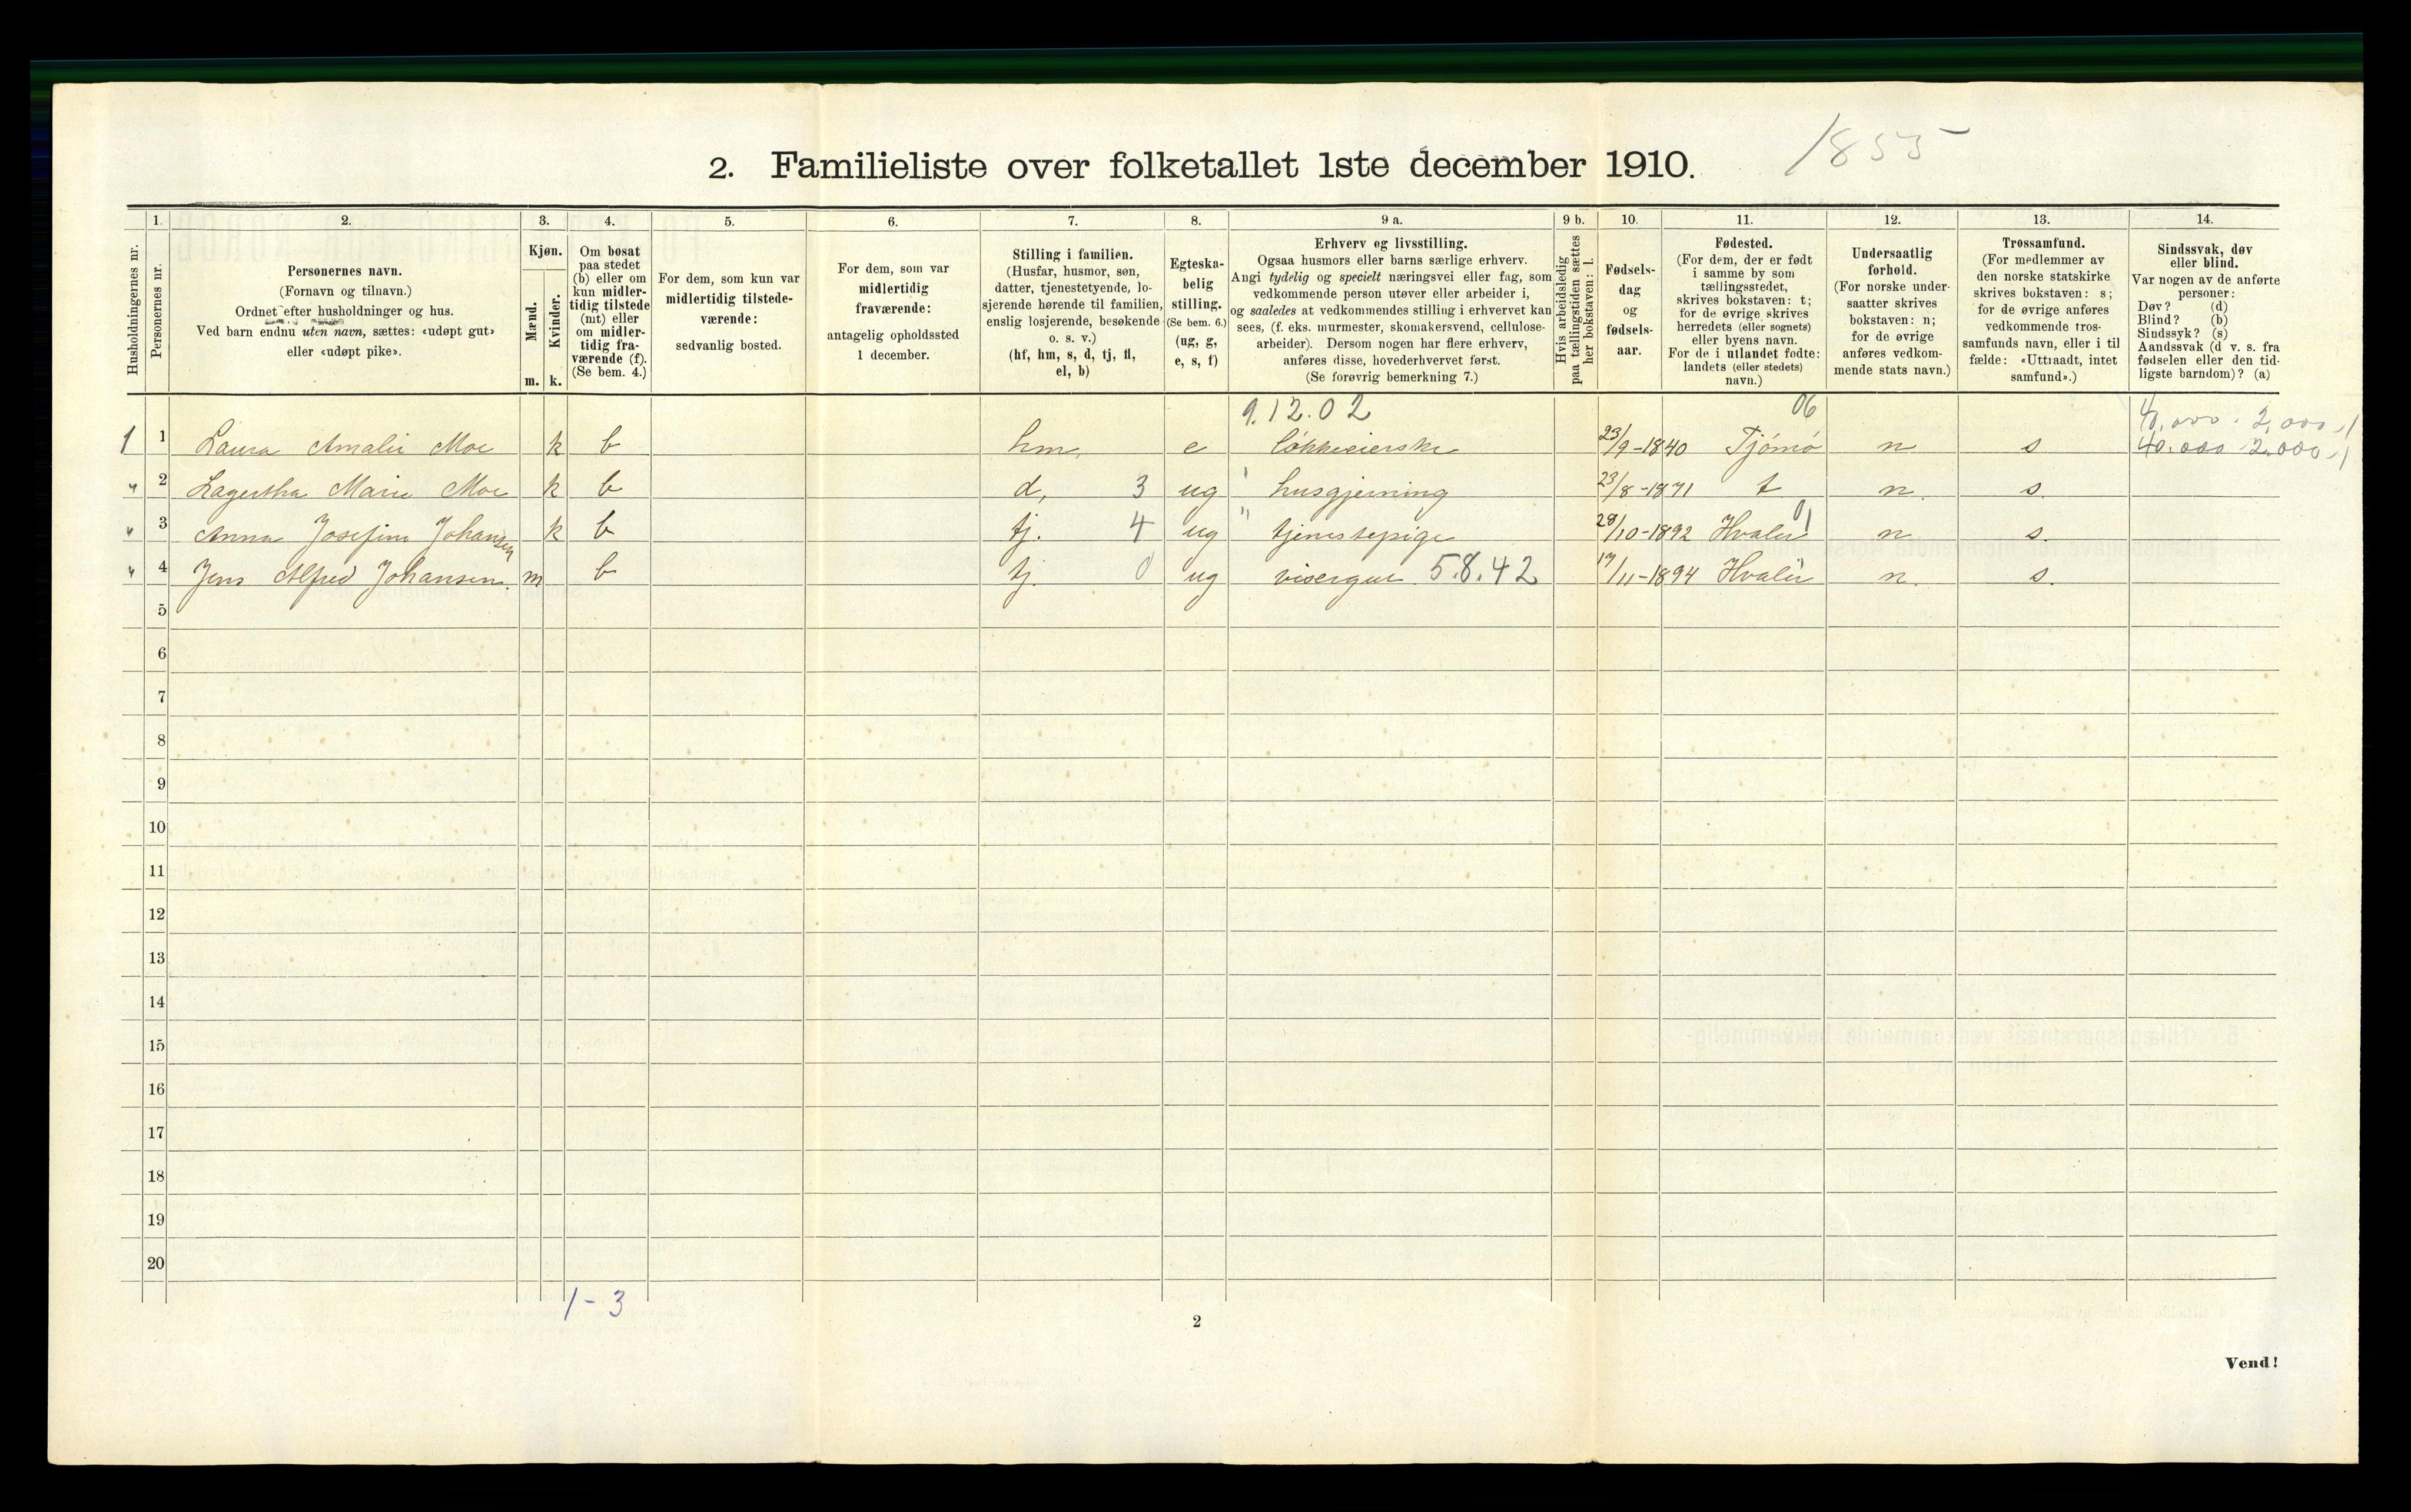 1855
2. Familieliste over folketallet 1ste december 1910.
Husholdningernes nr.
1.
Personernes nr.
2.
Personernes navn.
(Fornavn og tilnavn.)
Ordnet efter husholdninger og hus.
Ved barn endnu uten navn, sættes: «udøpt gut»
eller «udøpt pike».
3.
Kjøn.
Mænd.
Kvinder.
m. k.
4.
Om bosat
paa stedet
(b) eller om
kun midler-
tidig tilstede
(mt) eller
om midler-
tidig fra-
værende (f).
(Se bem. 4.)
5.
For dem, som kun var
midlertidig tilstede-
værende:
sedvanlig bosted.
6.
For dem, som var
midlertidig
fraværende:
antagelig opholdssted
1 december.
7.
Stilling i familien.
(Husfar, husmor, søn,
datter, tjenestetyende, lo-
sjerende hørende til familien,
enslig losjerende, besøkende
o. s. v.)
(hf, hm, s, d, tj, fl,
el, b)
8.
Egteska-
belig
stilling.
(Se bem. 6.)
(ug, g,
e, s, f)
9 a.
Erhverv og livsstilling.
Ogsaa husmors eller barns særlige erhverv.
Angi tydelig og specielt næringsvei eller fag, som
vedkommende person utøver eller arbeider i,
og saaledes at vedkommendes stilling i erhvervet kan
sees, (f. eks. murmester, skomakersvend, cellulose-
arbeider). Dersom nogen har flere erhverv,
anføres disse, hovederhvervet først.
(Se forøvrig bemerkning 7.)
9 b.
Hvis arbeidsledig
paa tællingstiden sættes
her bokstaven: l.
10.
Fødsels-
dag
og
fødsels-
aar.
11.
Fødested.
(For dem, der er født
i samme by som
tællingsstedet,
skrives bokstaven: t;
for de øvrige skrives
herredets (eller sognets)
eller byens navn.
For de i utlandet fødte:
landets (eller stedets)
navn.)
12.
Undersaatlig
forhold.
(For norske under-
saatter skrives
bokstaven: n;
for de øvrige
anføres vedkom-
mende stats navn.)
13.
Trossamfund.
(For medlemmer av
den norske statskirke
skrives bokstaven: s;
for de øvrige anføres
vedkommende tros-
samfunds navn, eller i til
fælde: «Uttraadt, intet
samfund».)
14.
Sindssvak, døv
eller blind.
Var nogen av de anførte
personer:
Døv? (d)
Blind? (b)
Sindssyk? (s)
Aandssvak (d v. s. fra
fødselen eller den tid-
ligste barndom)? (a)
9.12.02 06 40,000. 2,000./
1 1 Laura Amalie Moe k b hm, e løkkeeierske 23/9-1840 Tjømø n s 40.000 2.000./
" 2 Lagertha Marie Moe k b d, 3 ug husgjerning 23/8-1871 t n. s
" 3 Anna Josefine Johansen k b tj. 4 ug " tjenestepige 28/10-1892 Hvaler 01 n s.
" 4 Jens Alfred Johansen. m b tj. 0 ug visergut 5.8.42 17/11-1894 Hvaler n. s.
5
6
7
8
9
10
11
12
13
14
15
16
17
18
19
20
1-3
2
Vend!